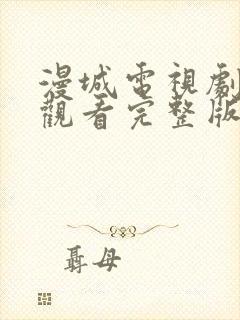 漫城電視劇
觀看完整版
聶母